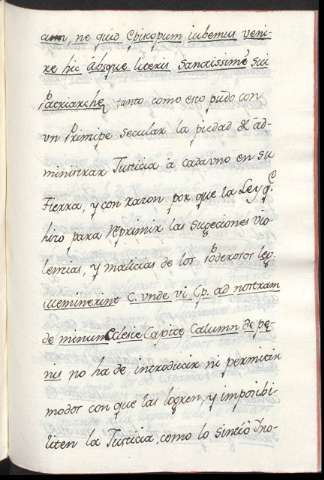 am, ne quid Episcopum iubemus veni-
re hic absque literis Sanctissimi sui
Patriarche, tanto como esto pudo con
un Principe secular la piedad de ad-
ministrar Justicia à cada uno en su
Tierra, y con razon por que la Ley q.
hizo para reprimir las sugeciones vio-
lencias, y malicias de los Poderosos
meminerint C. unde vi Cp. ad nostram
de pe-
nis no ha de introducir ni permitir
modos con que las logren, y imposibi-
liten la Justicia, como lo sintio Ino-